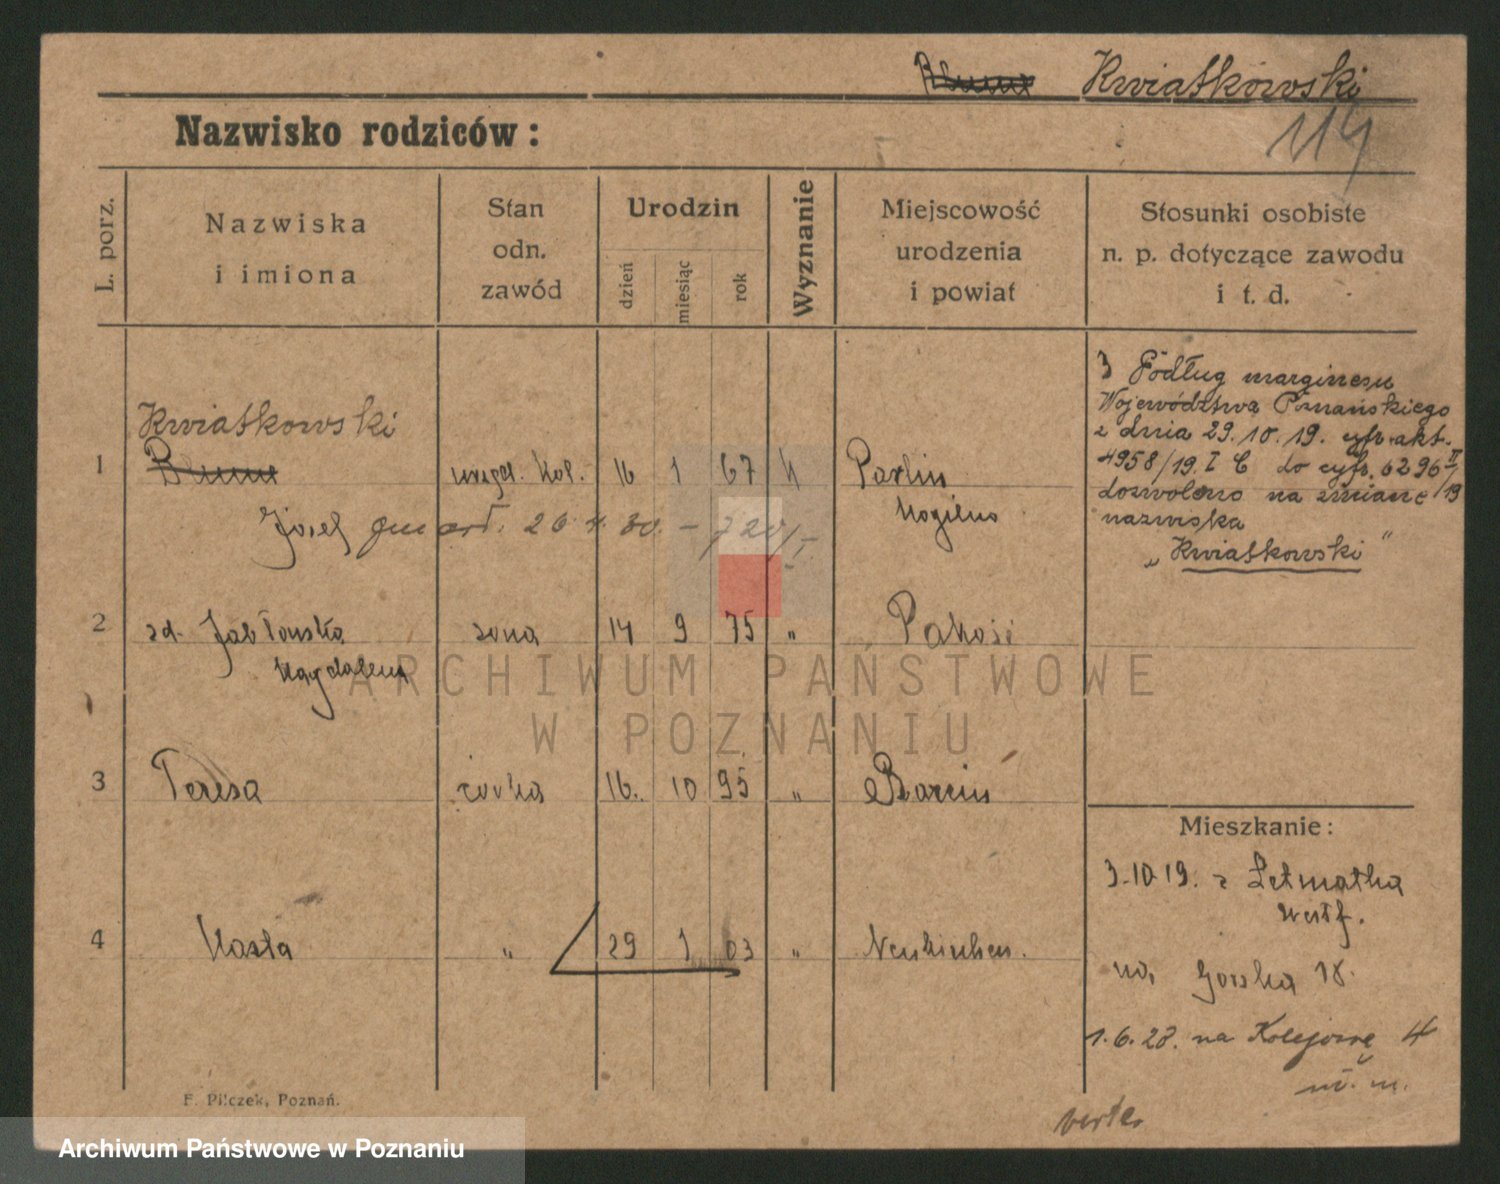 Kwiatkowski
114
Nazwisko rodziców:
L. porz.
Nazwiska
i imiona
Stan
odn.
zawód
Urodzin
dzień
miesiąc
rok
Wyznanie
Miejscowość
urodzenia
i powiat
Stosunki osobiste
n. p. dotyczące zawodu
i t. d.
3 Podług marginesu
Województwa Poznańskiego
z dnia 29.10.19. cyfr. akt.
4958/19. I C do cyfr. 6296 II/19
dozwolono na zmianę
nazwiska
„Kwiatkowski"
Kwiatkowski
1 kol. 16 1 67 k Parlin
Józef 26.4.30. – 720/I. Mogilno
2 zd. Jabłońska żona 14 9 75 „ Pakość
Magdalena
3 Teresa córka 16. 10 95 „ Barcin
Mieszkanie:
3.10.19. z Letmatha
Westf.
4 „ 29 1 03 „ Neukirchen.
na, Górska 18.
1.6.28. na Kolejową 4
m.
verte
F. Pilczek, Poznań.
ARCHIWUM PAŃSTWOWE
W POZNANIU
Archiwum Państwowe w Poznaniu